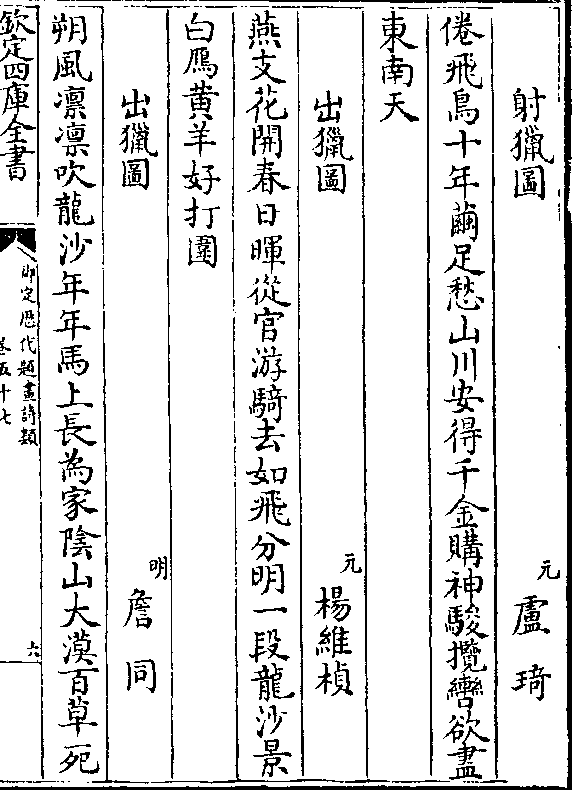 射獵圖　元　盧琦
倦飛鳥十年繭足愁山川安得千金購神駿攬轡欲盡
東南天
出獵圖　元　楊維楨
燕支花開春日暉從官游騎去如飛分明一段龍沙景
白鴈黄羊好打圍
出獵圖　明　詹同
朔風凛凛吹龍沙年年馬上長為家陰山大漠百草死
欽定四庫全書
御定歴代題畫詩類
卷五十七
六